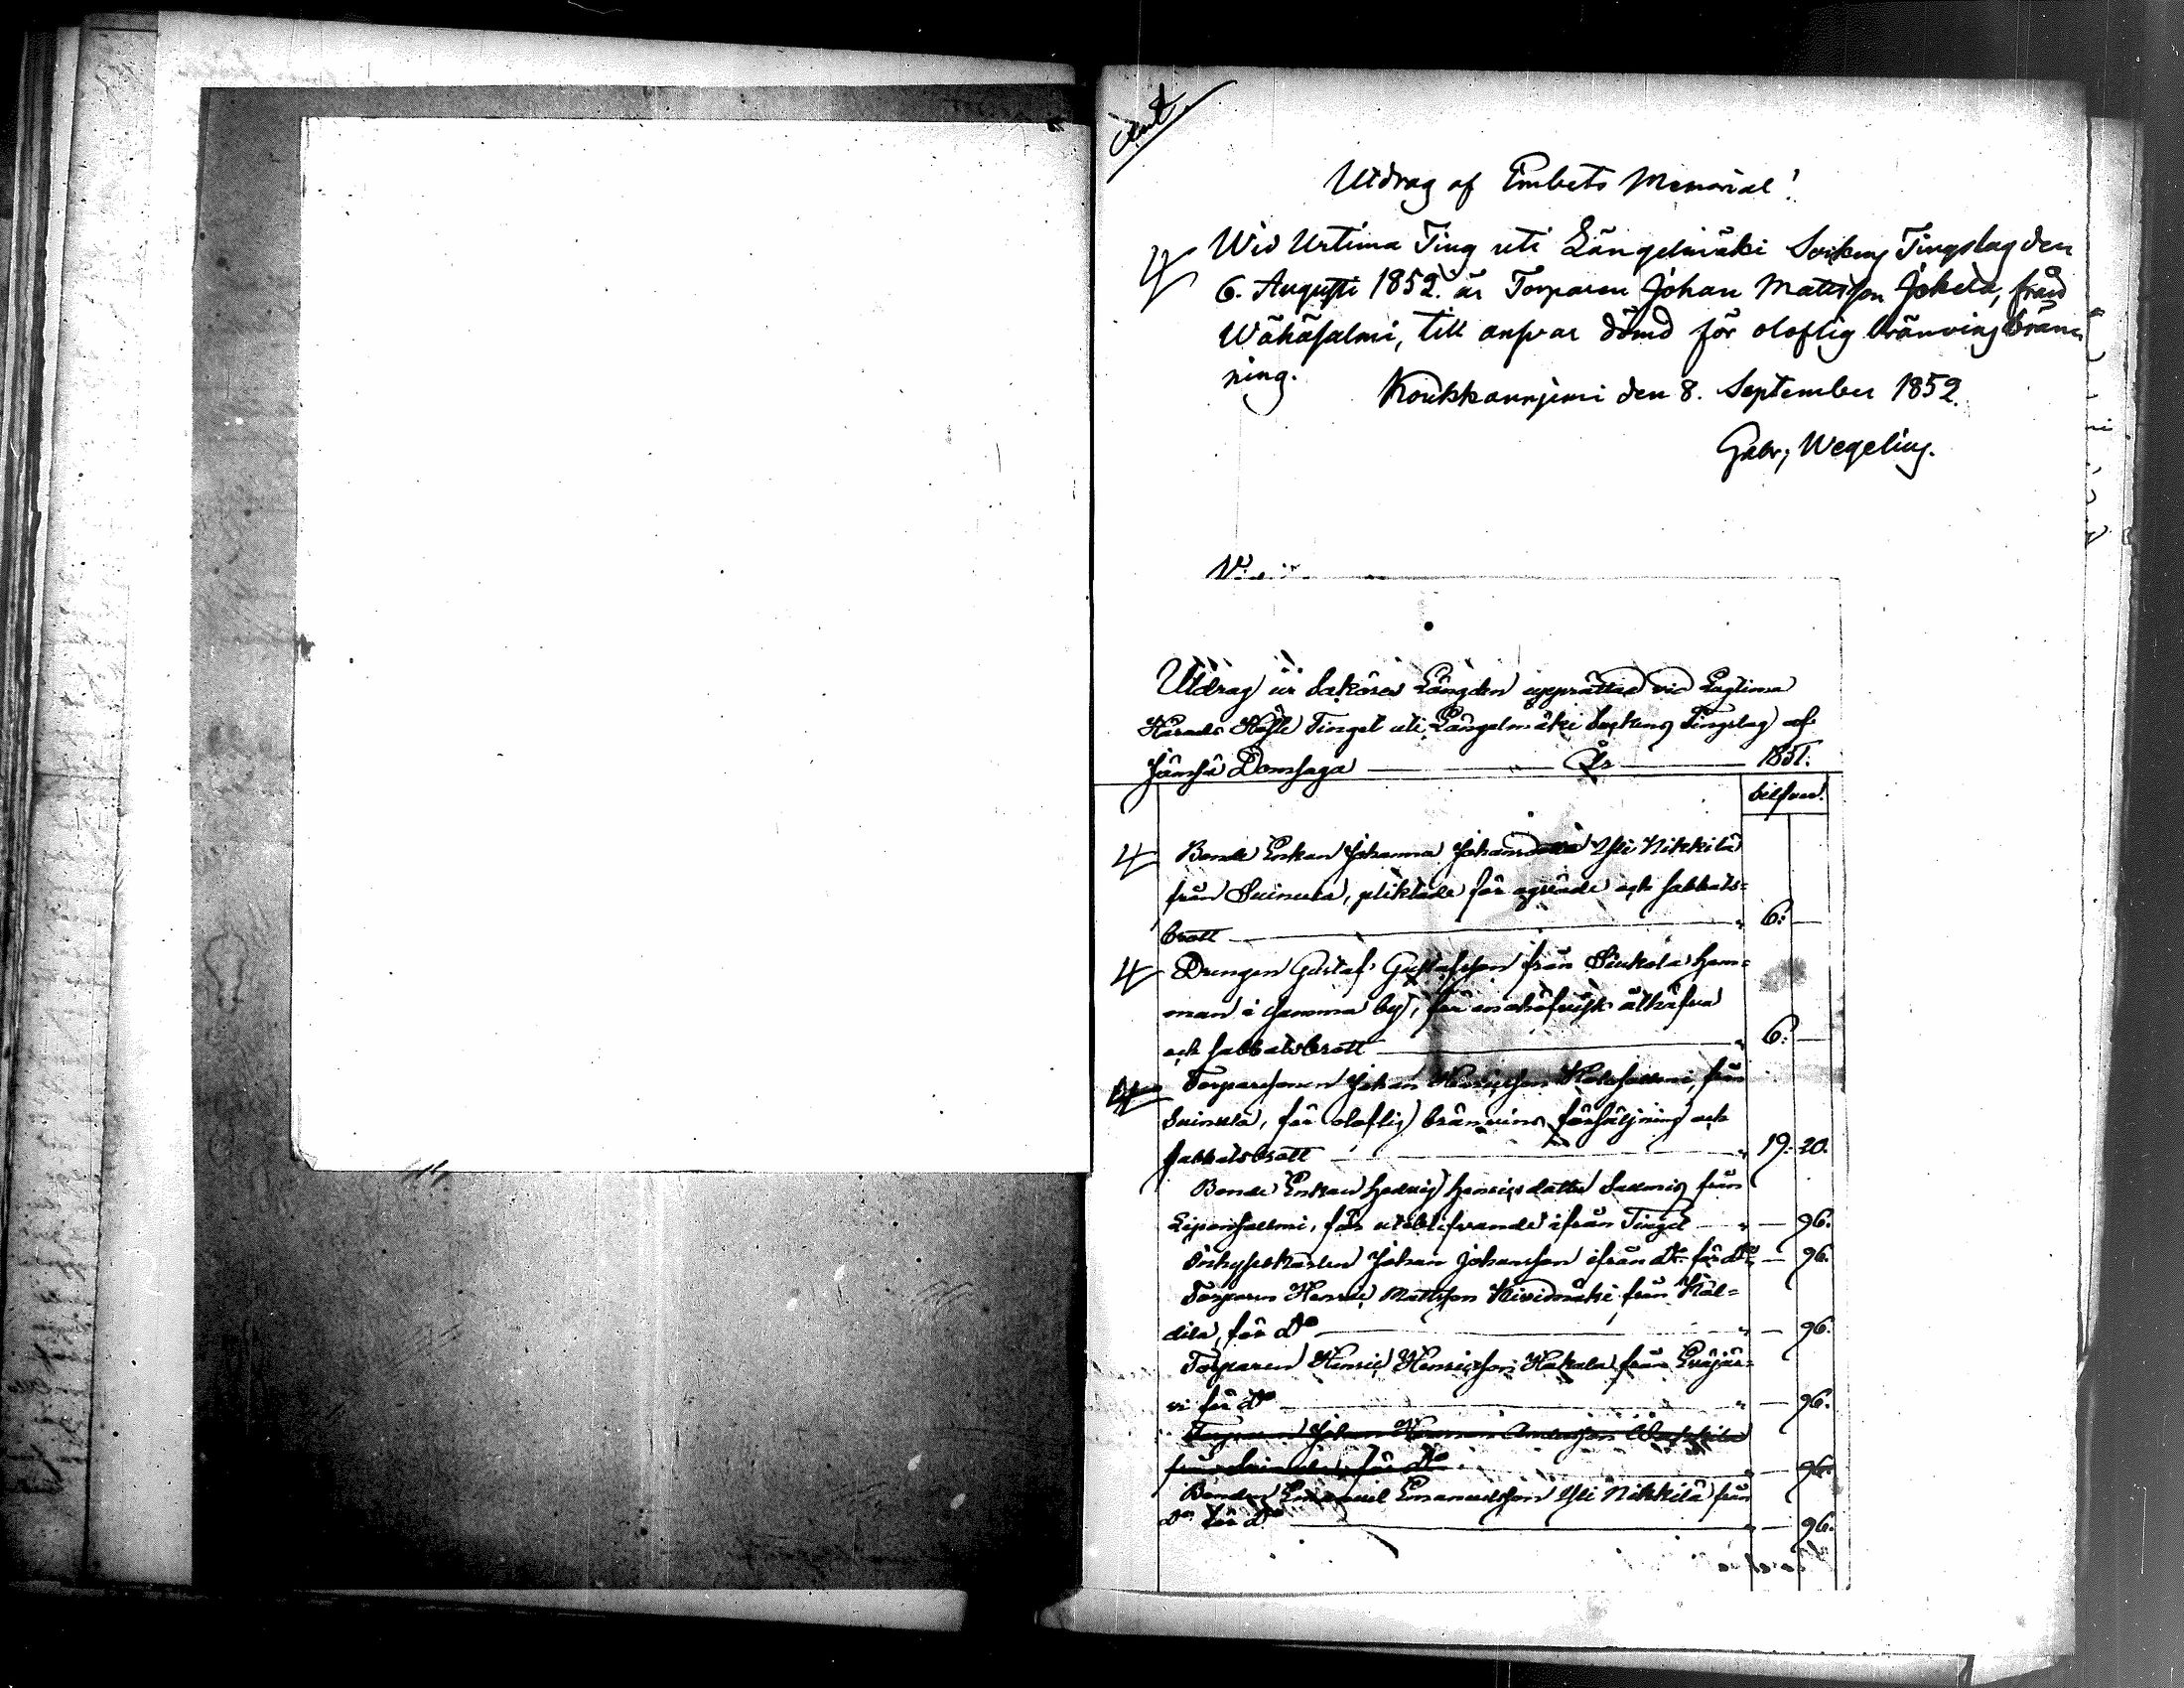 Ant
Utdrag af Embets Memorial!
Wid Urtima Ting uti Längelmäki Sockens Tingslag den
6. Augusti 1852. är Torparen Johan Mattsson Jokela, från
Wähäsalmi, till ansvar dömd för oloflig bränvinsbrän-
ning.
Koukkarniemi den 8. September 1852.
Gabr; Wegelius.
No.
Utdrag ur Saköres Längden upprättad vid Lagtima
Härads Höste Tinget uti Längelmäki Sockens Tingslag af
Jämsä Domsaga — År — 1851.
Silfver.
Bonde Enkan Johanna Johansdotter Yli Nikkilä
från Suinula, pliktade för och sabbats=
brott — " 6: —
Drengen Gustaf Gustafsson från Siukola hem=
man i samma by, för åthäfva
och sabbatsbrott — " 6: —
Torparesonen Johan Henricsson från
Suinula, för oloflig bränvins försäljning och
sabbatsbrott — " 19: 20.
Bonde Enkan Hedvig Henricsdotter från
för uteblifvande ifrån Tinget — " — 96.
Inhyseskarlen Johan Johansson ifrån do för do " — 96.
Torparen Henric Mattsson Kivimäki från Käl=
dila, för do — " — 96.
Torparen Henric Henricsson Hakala från Eräjär=
vi för do — " — 96.
Torparen Johan Herman Andersson
från Suinula, för do " — 96.
Bonden Emanuel Emanuelsson Yli Nikkilä från
do för do — " — 96.